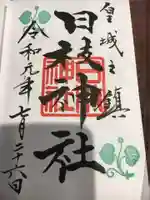 皇城之鎮
日枝神社
令和元年七月二十六日